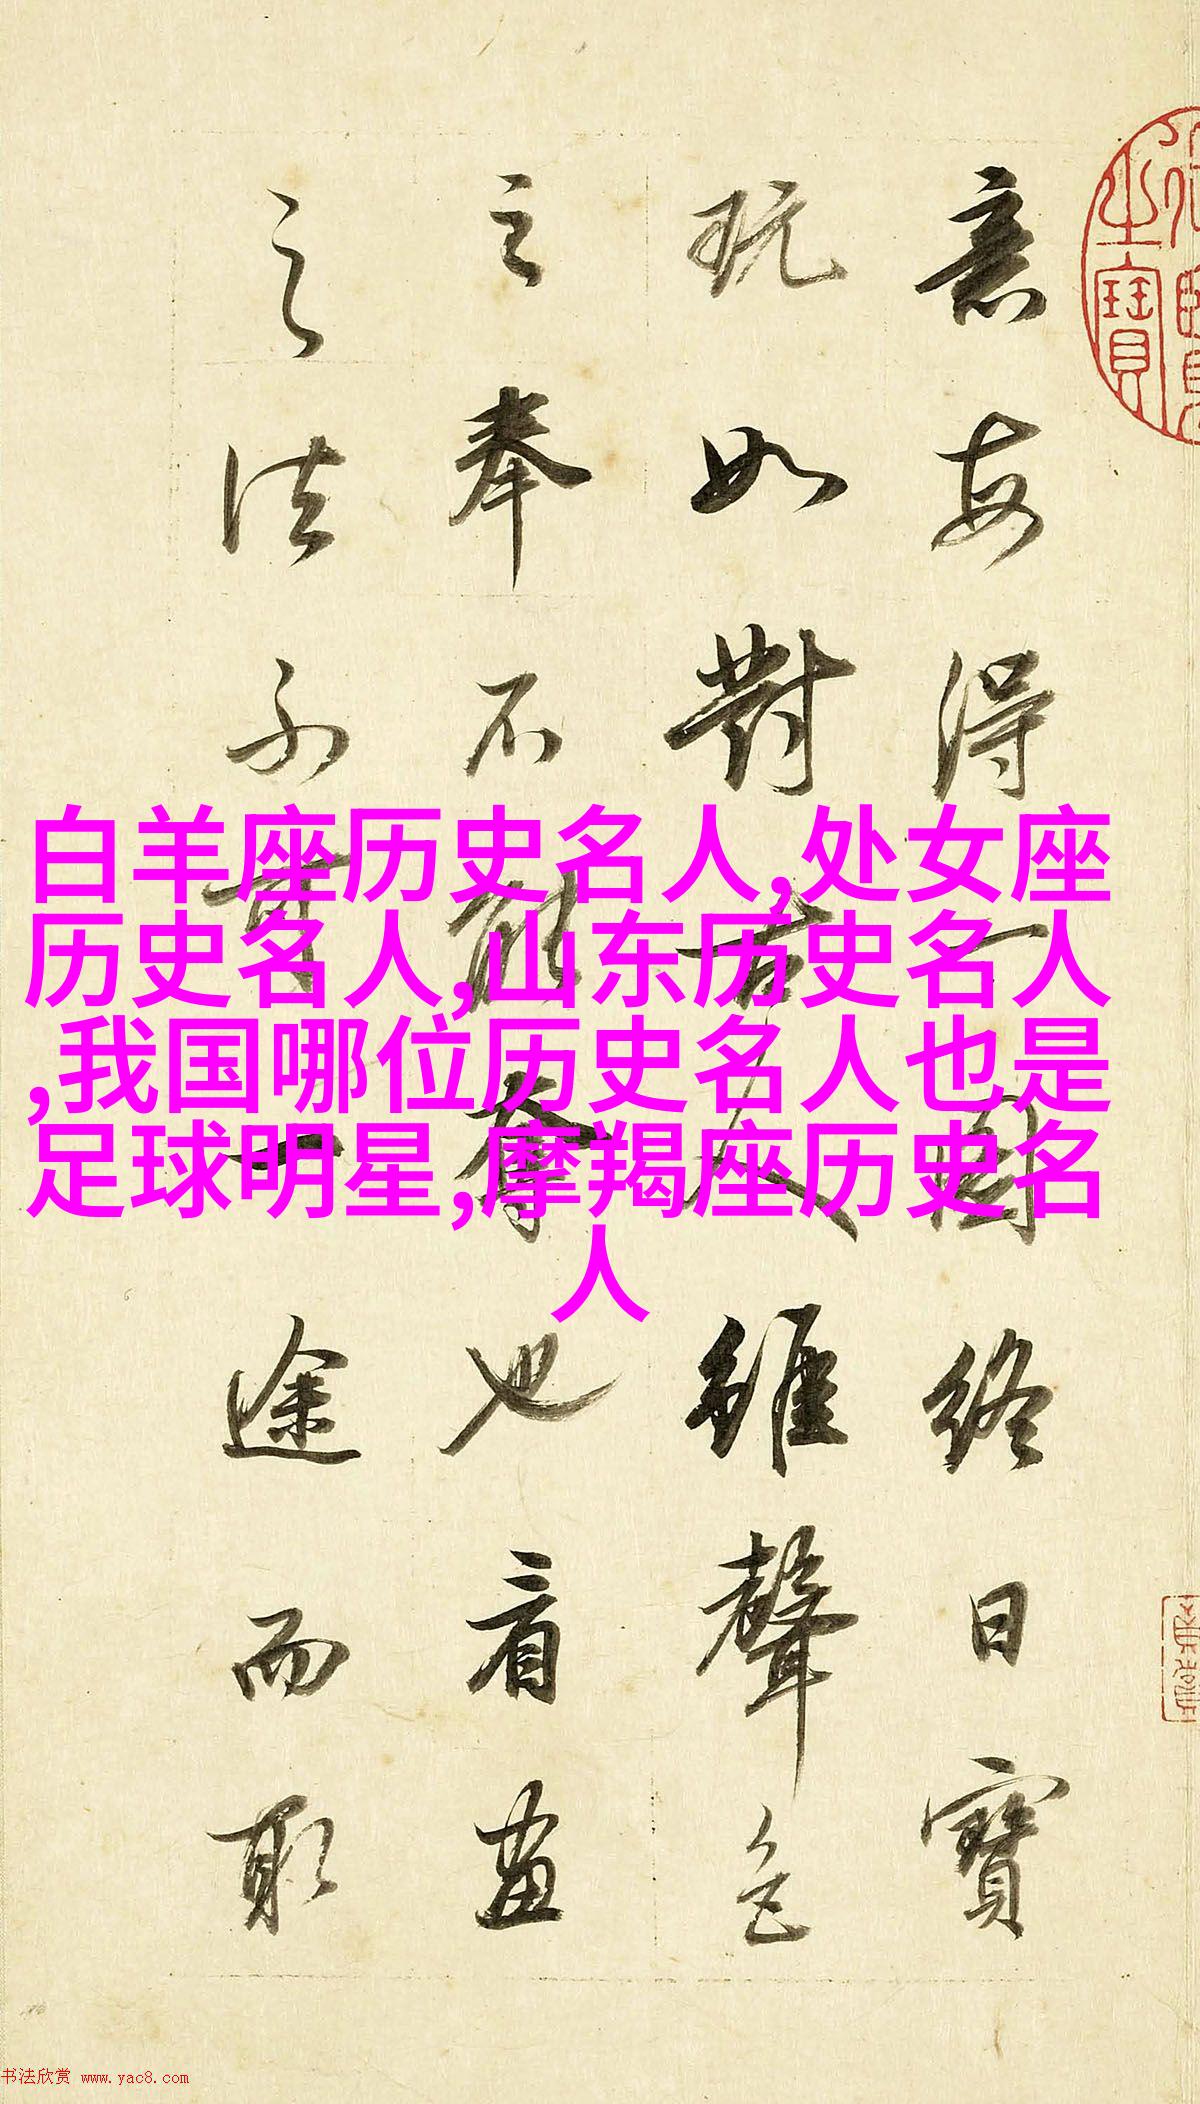 意每得一圖終日寶
玩如對古人雖聲色
之奉不能奪也看畫
之法不可一途而取
白羊座历史名人,处女座
历史名人,山东历史名人
,我国哪位历史名人也是
足球明星,摩羯座历史名
人
之寶
书法欣赏 www.yac8.com